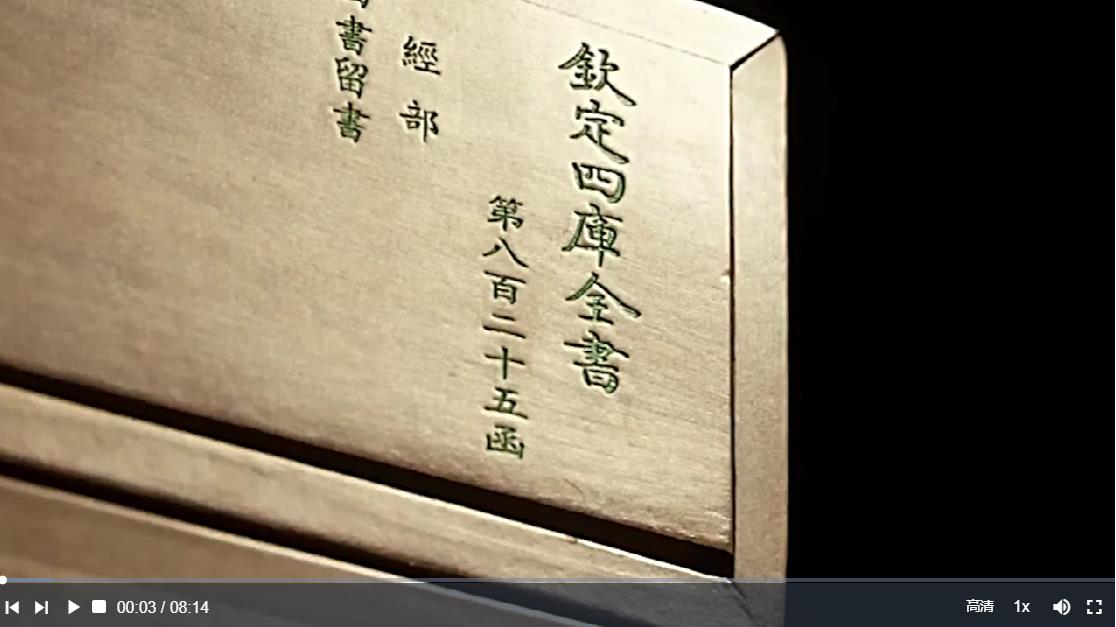 欽定四庫全書
第八百二十五函
經部
書留書
00:03 / 08:14
高清
1x